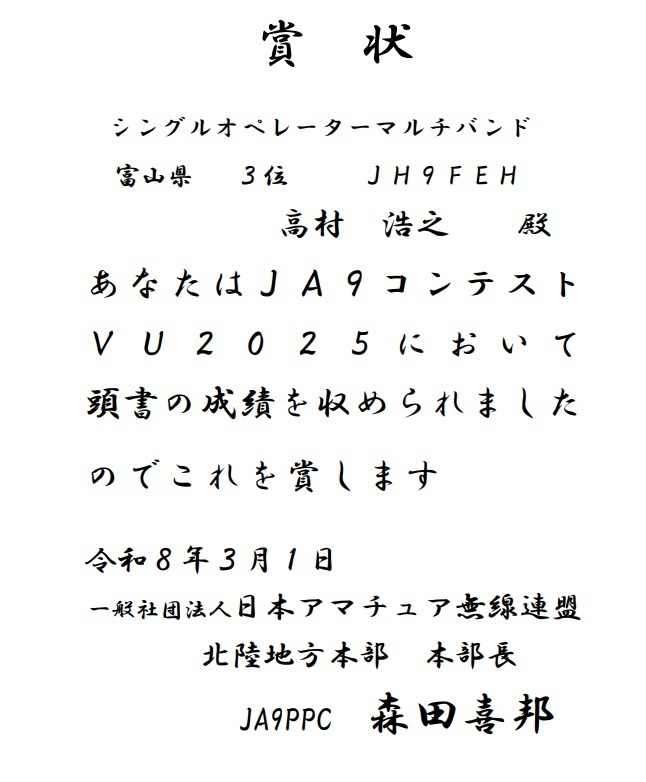 賞　状
シングルオペレーターマルチバンド
富山県　３位　　ＪＨ９ＦＥＨ
高村　浩之　　殿
あなたはＪＡ９コンテスト
ＶＵ２０２５において
頭書の成績を収められました
のでこれを賞します
令和８年３月１日
一般社団法人日本アマチュア無線連盟
北陸地方本部　本部長
JA9PPC　森田喜邦